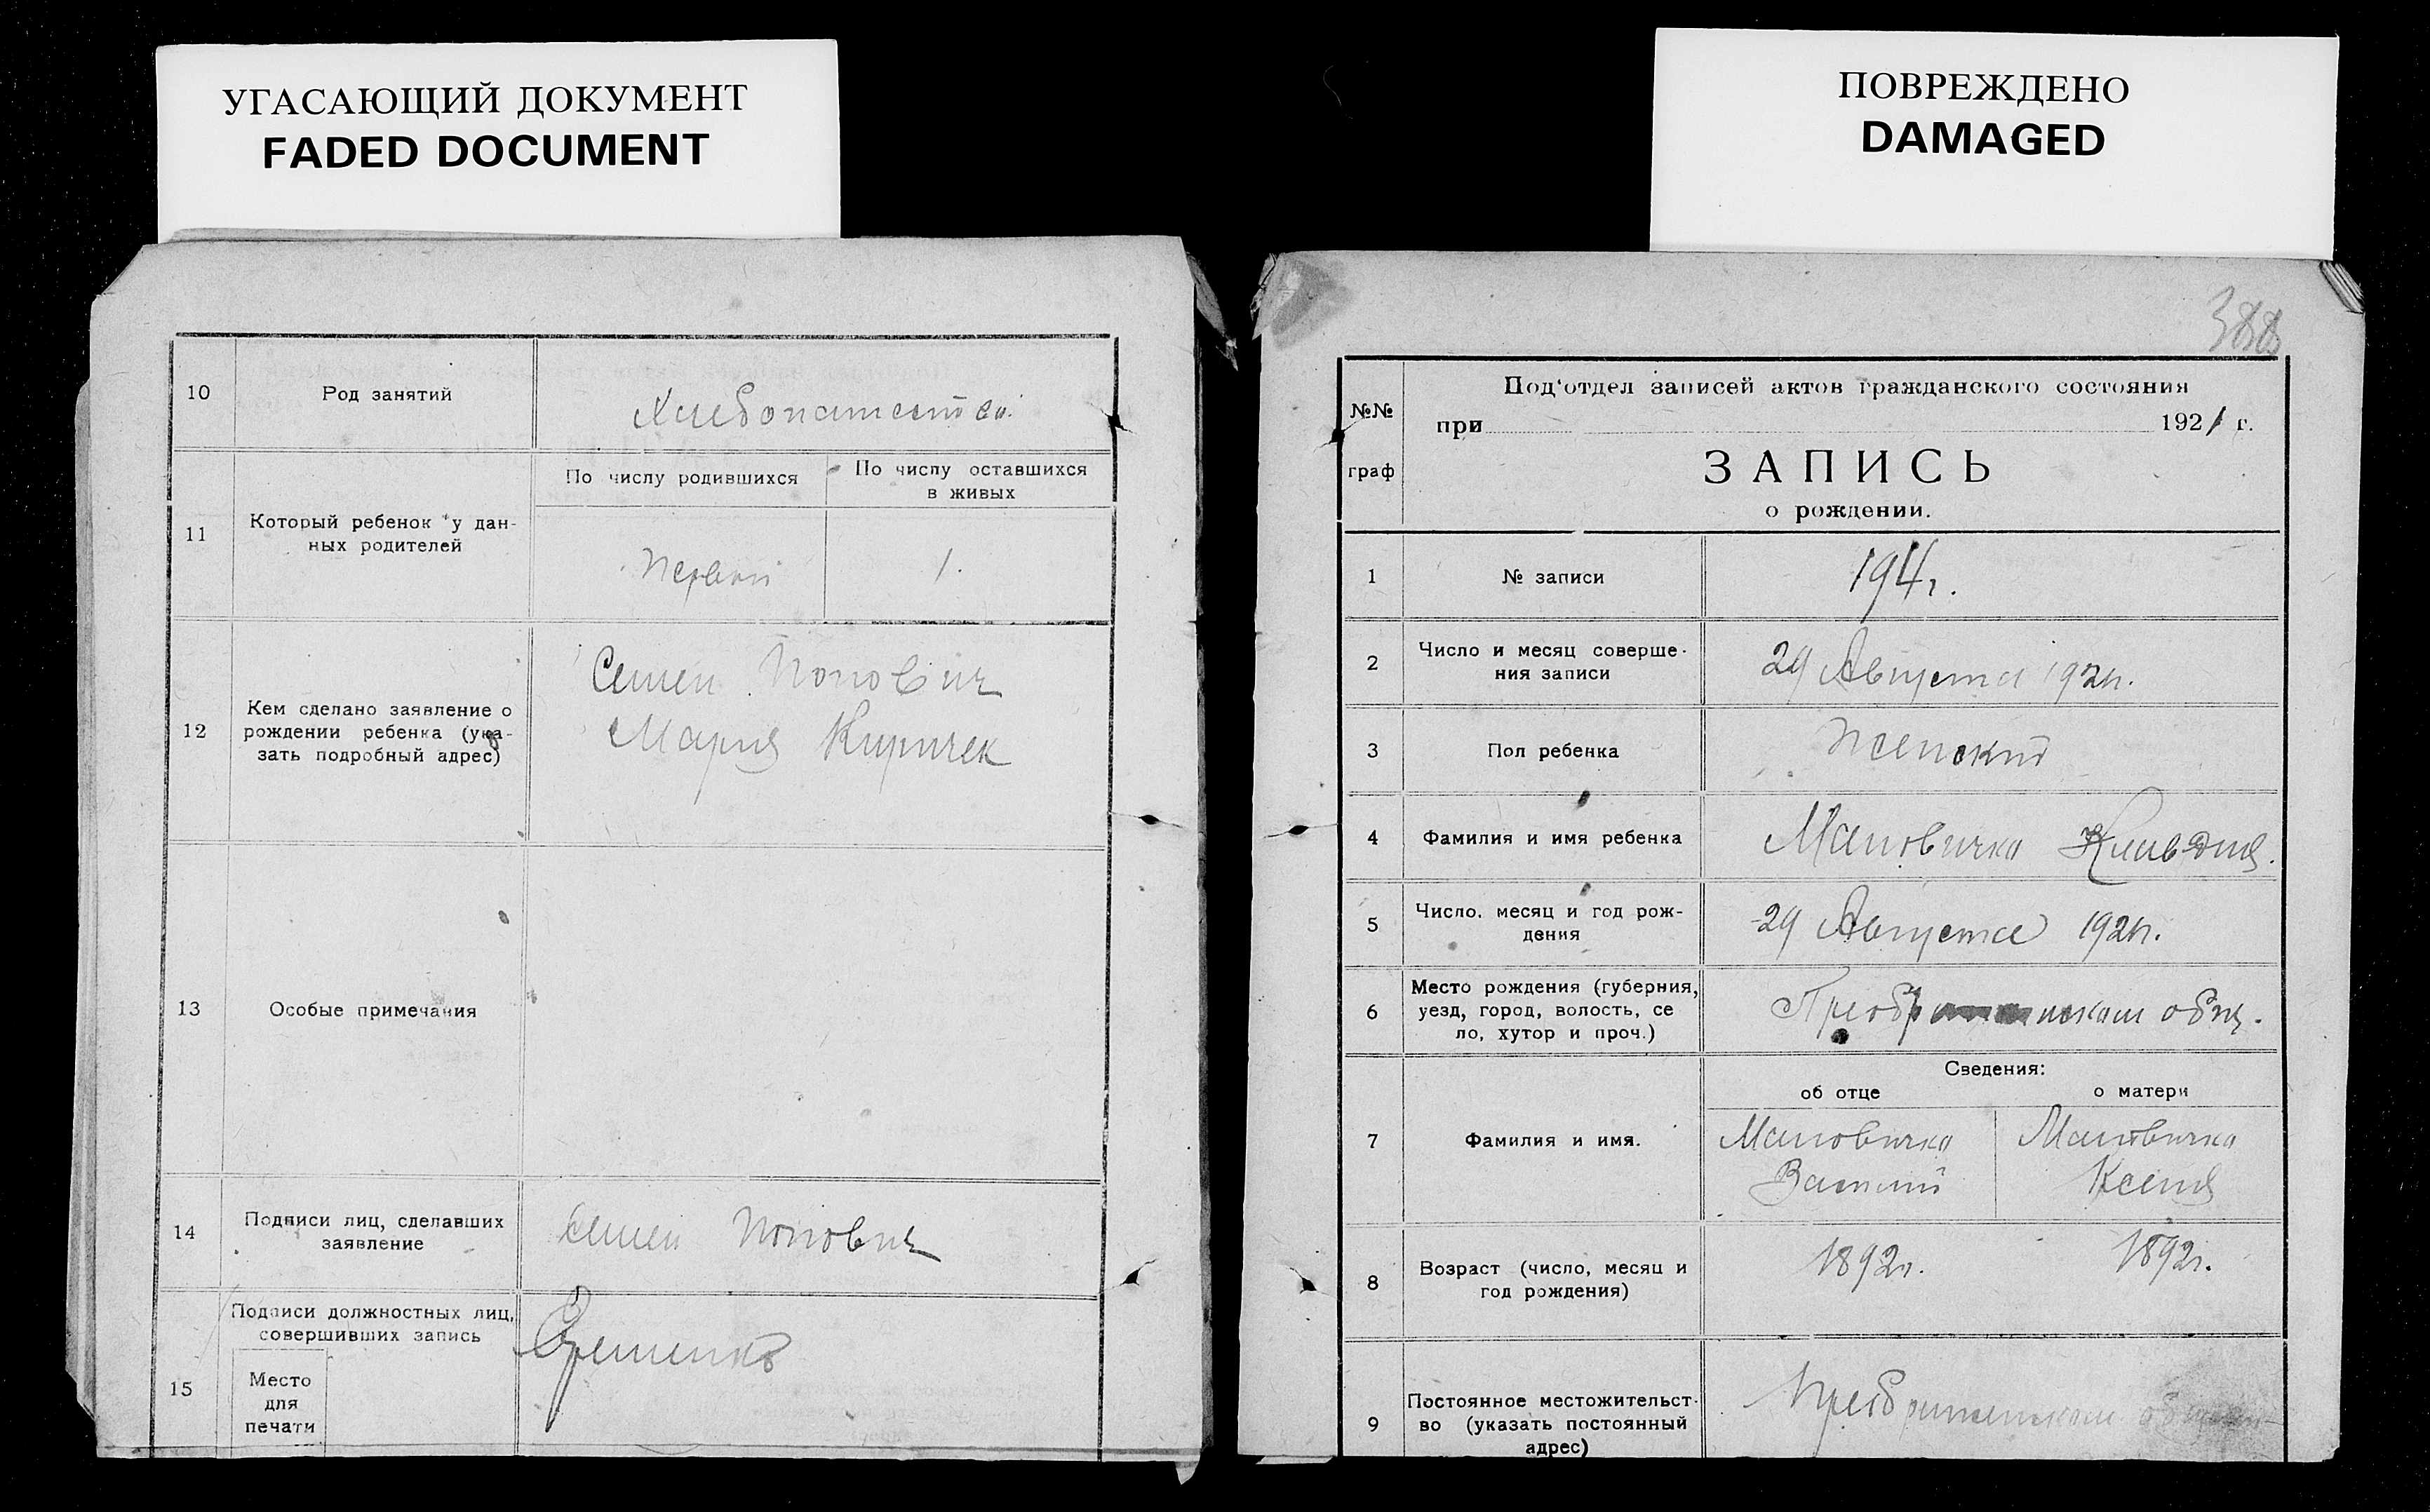 УГАСАЮЩИЙ ДОКУМЕНТ
FADED DOCUMENT
10
Род занятий
Хлебопашество.
11
Который ребенок у дан-
ных родителей
По числу родившихся
По числу оставшихся
в живых
Первый
1.
12
Кем сделано заявление о
рождении ребенка (ука-
зать подробный адрес)
Семен Попович
Мария Киричек
13
Особые примечания
14
Подписи лиц, сделавших
заявление
Семен Попович
15
Подписи должностных лиц,
совершивших запись
Место
для
печати
ПОВРЕЖДЕНО
DAMAGED
388
№№
граф
Под'отдел записей актов гражданского состояния
при 1921 г.
ЗАПИСЬ
о рождении.
1
№ записи
194г.
2
Число и месяц соверше-
ния записи
29 Августа 1921г.
3
Пол ребенка
Женский
4
Фамилия и имя ребенка
Маповичка Клавдия.
5
Число, месяц и год рож-
дения
29 Августа 1921г.
6
Место рождения (губерния,
уезд, город, волость, се
ло, хутор и проч.)
общ.
Сведения:
об отце
о матери
7
Фамилия и имя.
Маповичка
Василий
Маповичка
Ксения
8
Возраст (число, месяц и
год рождения)
1892г.
1892г.
9
Постоянное местожительст-
во (указать постоянный
адрес)